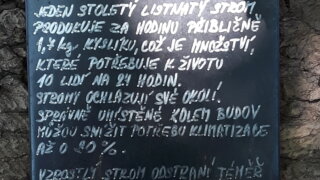 JEDEN STOLETÝ LISTNATÝ STROM
PRODUKUJE ZA HODINU PŘIBLIŽNĚ
1,7 kg KYSLÍKU, COŽ JE MNOŽSTVÍ,
KTERÉ POTŘEBUJE K ŽIVOTU
10 LIDÍ NA 24 HODIN.
STROMY OCHLAZUJÍ SVÉ OKOLÍ.
SPRÁVNĚ UMÍSTĚNÉ KOLEM BUDOV
MŮŽOU SNÍŽIT POTŘEBU KLIMATIZACE
AŽ O 30%.
VZROSTLÝ STROM ODSTRANÍ TÉMĚŘ